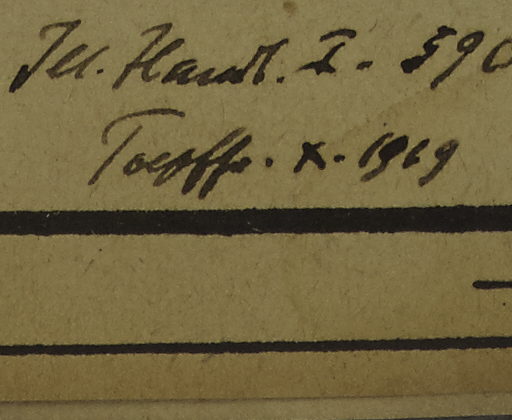 Ill. Handl. I. 590
Toepffer. X. 1919